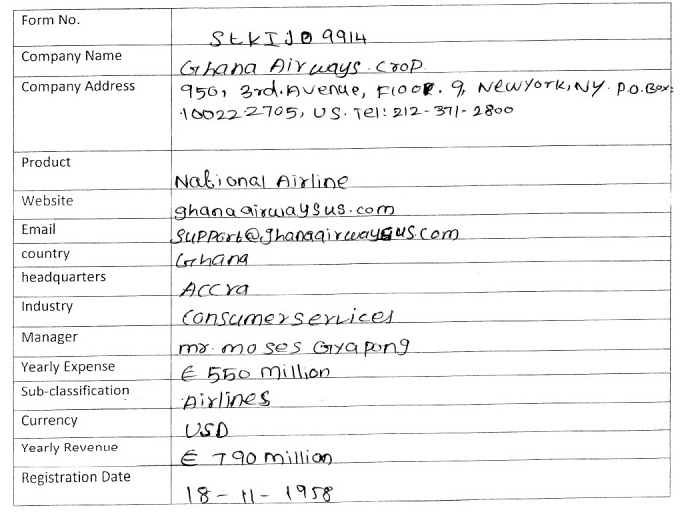 Form No. StkIJ09914
Company Name Ghana Airways. Crop.
Company Address 950, 3rd. Avenue, Floor. 9, NewYork, NY. P.O.Box:
10022-2705, US. Tel: 212-371-2800
Product National Airline
Website ghanaairwaysus.com
Email Support@ghanaairwaysus.com
country Ghana
headquarters Accra
Industry Consumerservices
Manager mr. moses Gyapong
Yearly Expense € 550 million
Sub-classification Airlines
Currency USD
Yearly Revenue € 790 million
Registration Date 18-11-1958